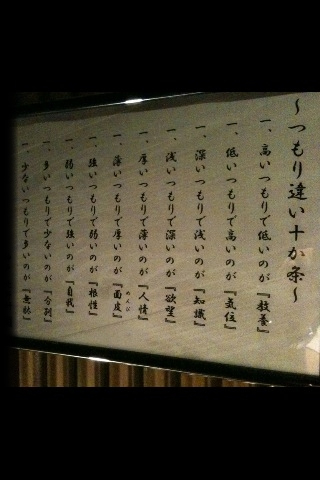 ～つもり違い十か条～
一、高いつもりで低いのが『教養』
一、低いつもりで高いのが『気位』
一、深いつもりで浅いのが『知識』
一、浅いつもりで深いのが『欲望』
一、厚いつもりで薄いのが『人情』
一、薄いつもりで厚いのが『面皮』
めんぴ
一、強いつもりで弱いのが『根性』
一、弱いつもりで強いのが『自我』
一、多いつもりで少ないのが『分別』
一、少ないつもりで多いのが『無駄』